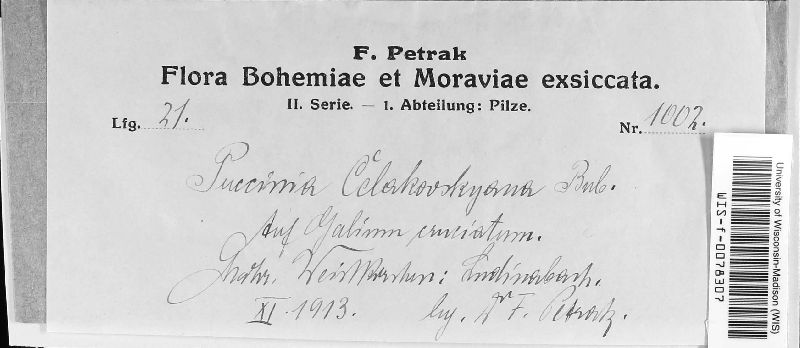 F. Petrak
Flora Bohemiae et Moraviae exsiccata.
II. Serie. — 1. Abteilung: Pilze.
Lfg. 21.
Nr. 1002.
Puccinia Čelakovskyana Bub.
Auf Galium cruciatum.
Mähr. Weisskirchen: Ludinabach.
XI. 1913. lg. Dr F. Petrak.
University of Wisconsin-Madison (WIS)
WIS-f-0078307